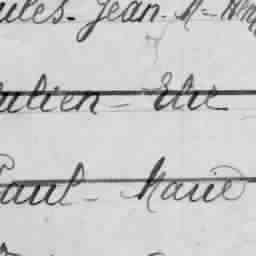 Jules-Jean-M-
Julien-Elie
Paul-Marie